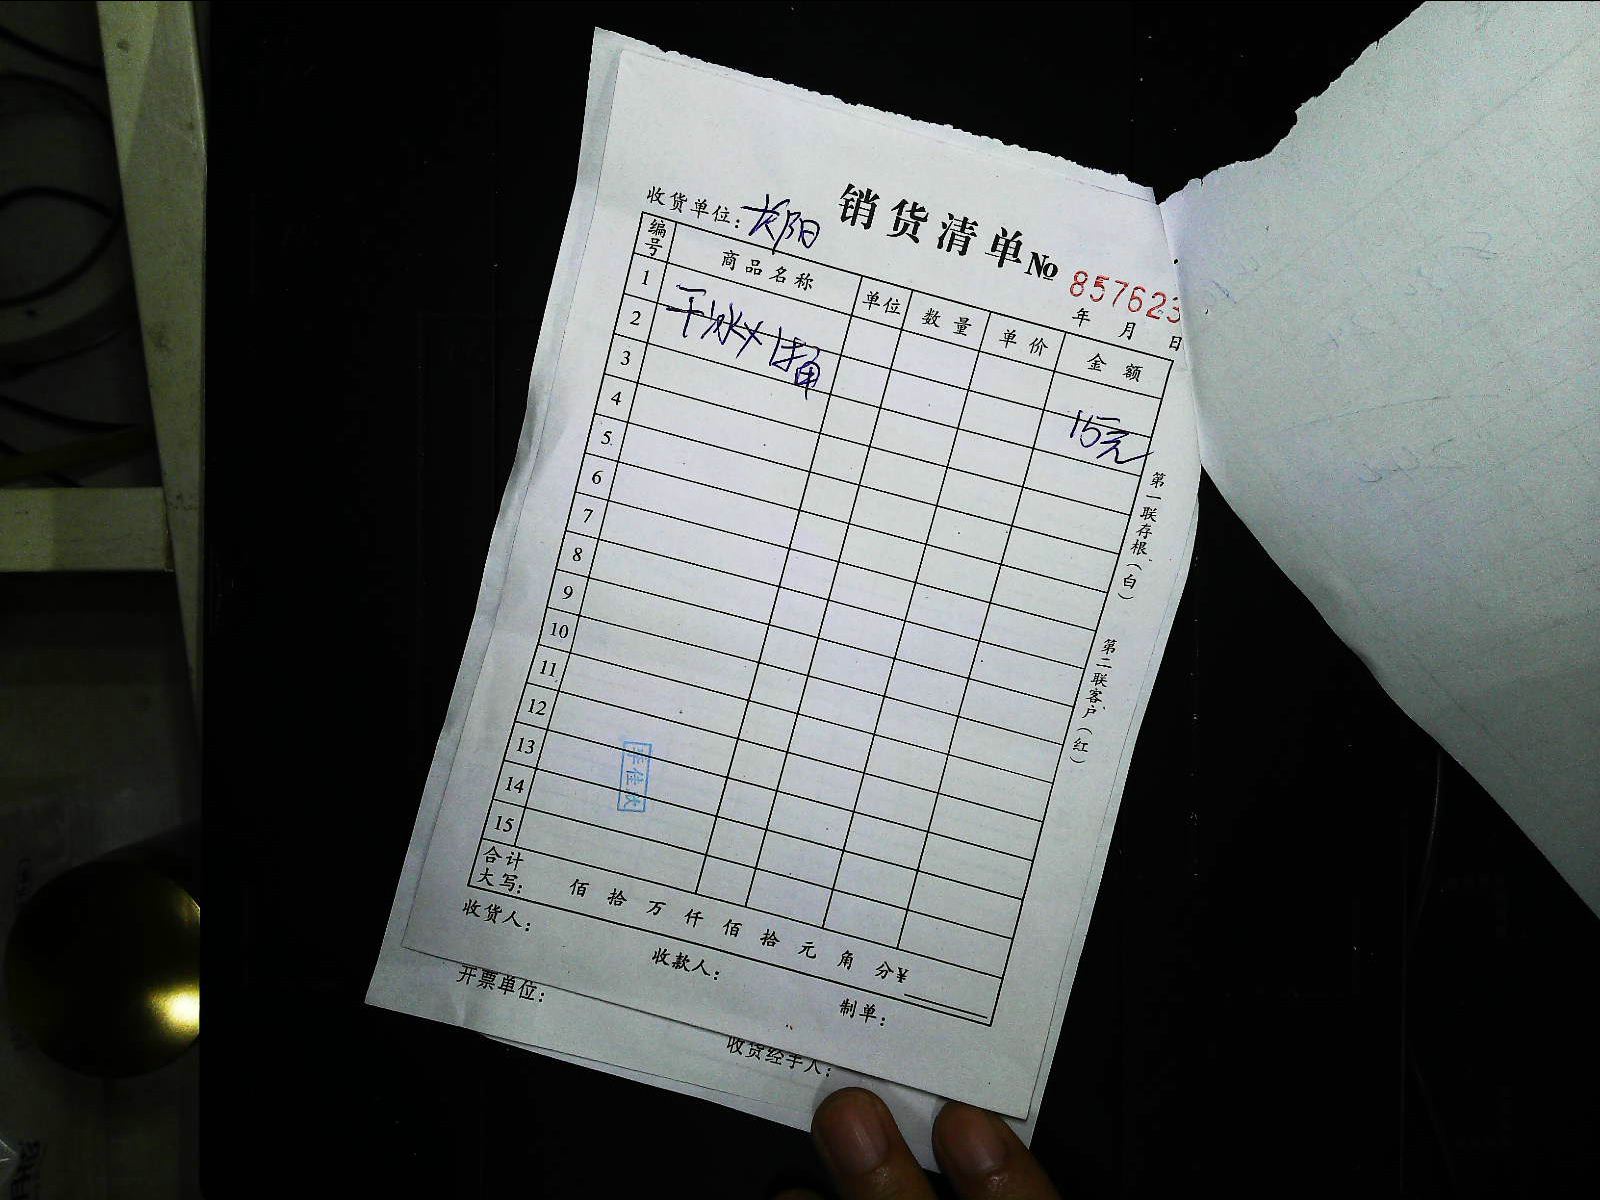 销货清单 № 857623
收货单位：
年 月 日
编号 商品名称 单位 数量 单价 金额
1
2 干冰×1桶 15元
3
4
5
6
7
8
9
10
11
12
13
14
15
合计
大写： 佰 拾 万 仟 佰 拾 元 角 分 ¥
收货人： 收款人： 制单：
第一联存根（白） 第二联客户（红）
开票单位：
收货经手人：